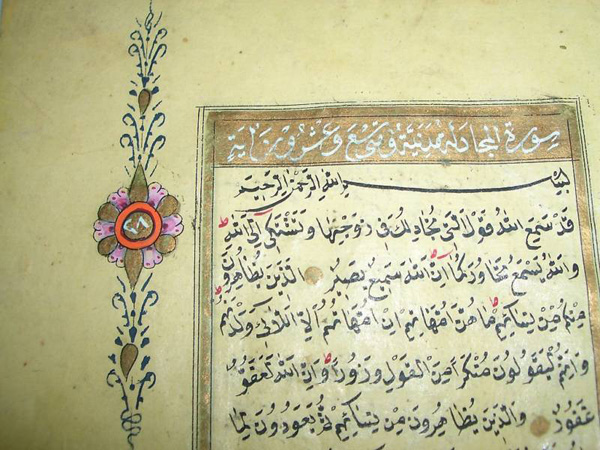 سورة المجادله مدنية وتسع وعشرون اية
٢٨
بسم الله الرحمن الرحيم
قَدْ سَمِعَ اللهُ قَوْلَ الَّتِي تُجَادِلُكَ فِي زَوْجِهَا وَتَشْتَكِي إِلَى اللهِ
وَاللهُ يَسْمَعُ تَحَاوُرَكُمَا إِنَّ اللهَ سَمِيعٌ بَصِيرٌ الَّذِينَ يُظَاهِرُونَ
مِنْكُمْ مِنْ نِسَائِهِمْ مَا هُنَّ أُمَّهَاتِهِمْ إِنْ أُمَّهَاتُهُمْ إِلَّا اللَّائِي وَلَدْنَهُمْ
وَإِنَّهُمْ لَيَقُولُونَ مُنْكَرًا مِنَ الْقَوْلِ وَزُورًا وَإِنَّ اللهَ لَعَفُوٌّ
غَفُورٌ وَالَّذِينَ يُظَاهِرُونَ مِنْ نِسَائِهِمْ ثُمَّ يَعُودُونَ لِمَا